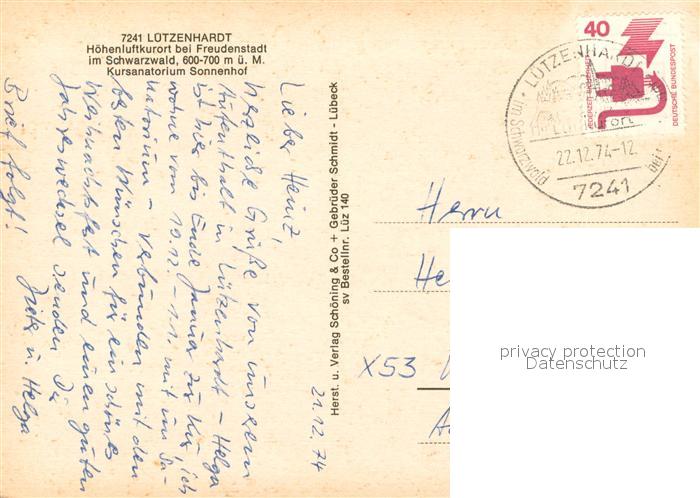 7241 LÜTZENHARDT
Höhenluftkurort bei Freudenstadt
im Schwarzwald, 600-700 m ü. M.
Kursanatorium Sonnenhof
21.12.74
Lieber Heinz,
herzliche Grüße von unserem
Aufenthalt in Lützenhardt - Helga
ist hier bis Ende Januar zur Kur, ich
wohne von 19.12. - 1.1. mit im Sa-
natorium - Verbunden mit den
besten Wünschen für ein schönes
Weihnachtsfest und einen guten
Jahreswechsel senden Dir
u. Helga
Brief folgt!
Herst. u. Verlag Schöning & Co + Gebrüder Schmidt - Lübeck
sv Bestellnr. Lüz 140
40
JEDERZEIT SICHERHEIT
DEUTSCHE BUNDESPOST
LÜTZENHARDT
im Schwarzwald
22.12.74-12
7241
Herrn
He
X53
privacy protection
Datenschutz